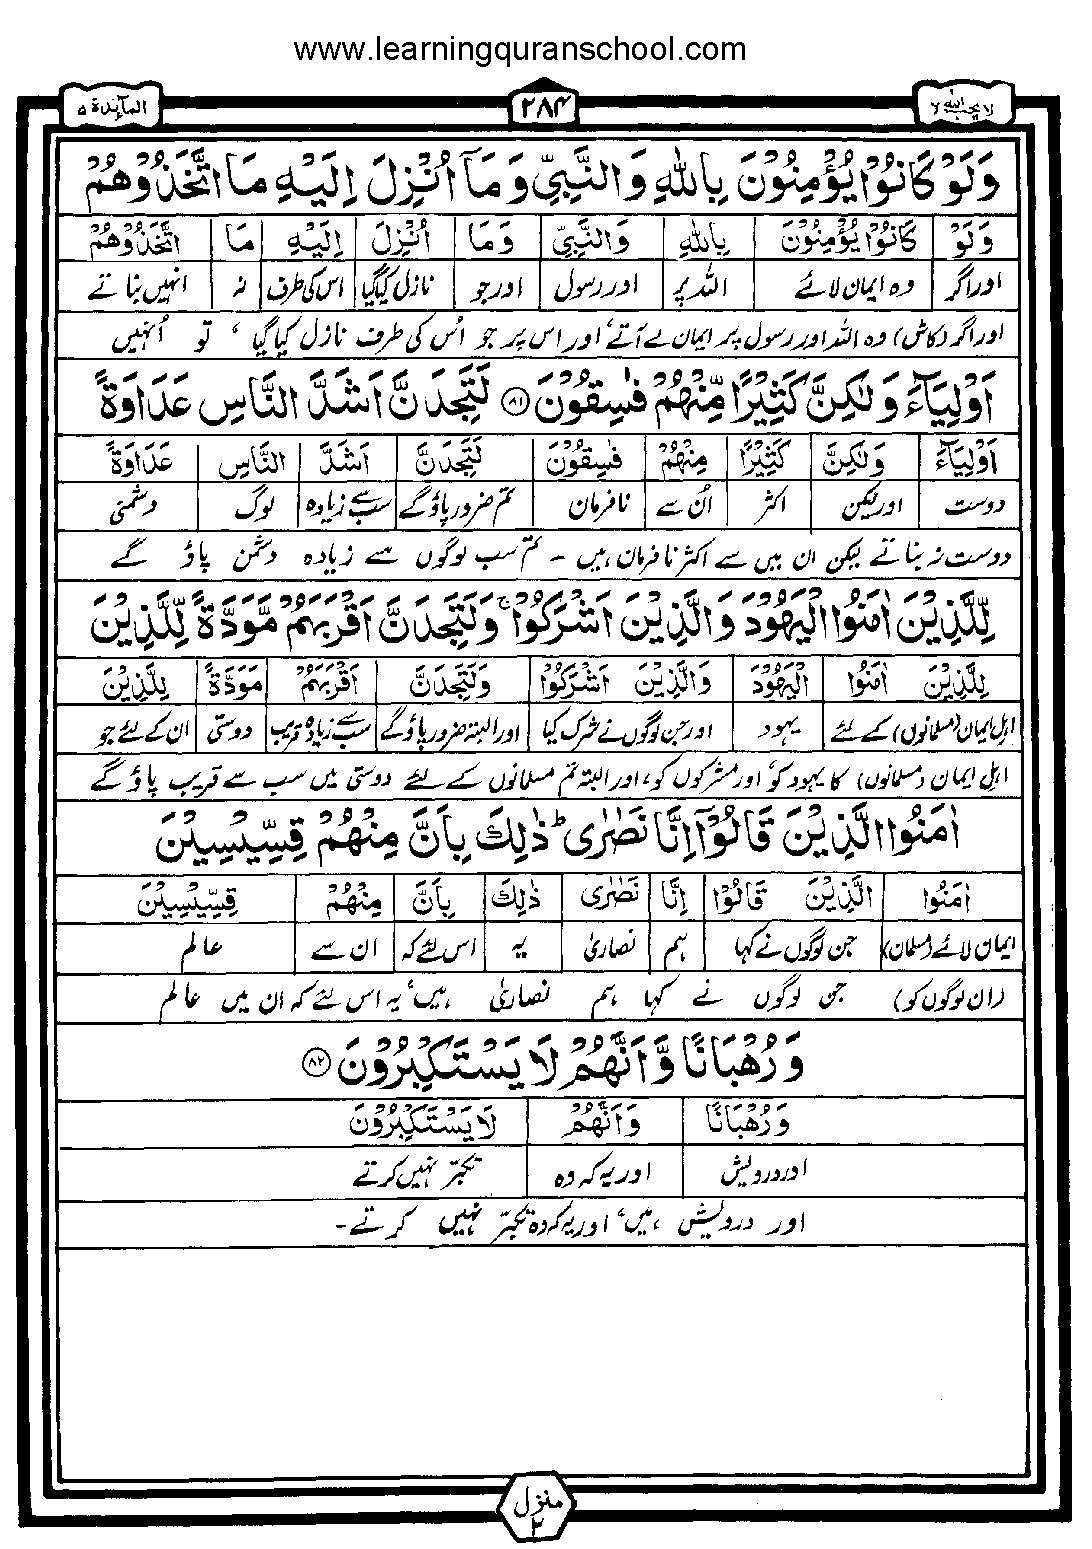 www.learningquranschool.com
لا یحب اللہ ۷
۲۸۴
المآئدۃ ۵
وَلَوْ كَانُوْا يُؤْمِنُوْنَ بِاللّٰهِ وَالنَّبِيِّ وَمَآ اُنْزِلَ اِلَيْهِ مَا اتَّخَذُوْهُمْ
وَلَوْ كَانُوْا يُؤْمِنُوْنَ بِاللّٰهِ وَالنَّبِيِّ وَمَا اُنْزِلَ اِلَيْهِ مَا اتَّخَذُوْهُمْ
اور اگر وہ ایمان لائے اللہ پر اور رسول اور جو نازل کیا گیا اس کی طرف نہ انہیں بناتے
اور اگر (کاش) وہ اللہ اور رسول پر ایمان لے آتے، اور اس پر جو اُس کی طرف نازل کیا گیا، تو اُنہیں
اَوْلِيَآءَ وَلٰكِنَّ كَثِيْرًا مِّنْهُمْ فٰسِقُوْنَ ﴿۸۱﴾ لَتَجِدَنَّ اَشَدَّ النَّاسِ عَدَاوَةً
اَوْلِيَآءَ وَلٰكِنَّ كَثِيْرًا مِنْهُمْ فٰسِقُوْنَ لَتَجِدَنَّ اَشَدَّ النَّاسِ عَدَاوَةً
دوست اور لیکن اکثر اُن سے نافرمان تم ضرور پاؤ گے سب سے زیادہ لوگ دشمنی
دوست نہ بناتے لیکن ان میں سے اکثر نافرمان ہیں۔ تم سب لوگوں سے زیادہ دشمن پاؤ گے
لِّلَّذِيْنَ اٰمَنُوا الْيَهُوْدَ وَالَّذِيْنَ اَشْرَكُوْا ۚ وَلَتَجِدَنَّ اَقْرَبَهُمْ مَّوَدَّةً لِّلَّذِيْنَ
لِلَّذِيْنَ اٰمَنُوا الْيَهُوْدَ وَالَّذِيْنَ اَشْرَكُوْا وَلَتَجِدَنَّ اَقْرَبَهُمْ مَوَدَّةً لِلَّذِيْنَ
اہلِ ایمان (مسلمانوں) کے لئے یہود اور جن لوگوں نے شرک کیا اور البتہ ضرور پاؤ گے سب سے زیادہ قریب دوستی ان کے لئے جو
اہلِ ایمان (مسلمانوں) کا یہود کو، اور مشرکوں کو، اور البتہ تم مسلمانوں کے لئے دوستی میں سب سے قریب پاؤ گے
اٰمَنُوا الَّذِيْنَ قَالُوْٓا اِنَّا نَصٰرٰى ؕ ذٰلِكَ بِاَنَّ مِنْهُمْ قِسِّيْسِيْنَ
اٰمَنُوا الَّذِيْنَ قَالُوْا اِنَّا نَصٰرٰى ذٰلِكَ بِاَنَّ مِنْهُمْ قِسِّيْسِيْنَ
ایمان لائے (مسلمان) جن لوگوں نے کہا ہم نصاریٰ یہ اس لئے کہ ان سے عالم
(ان لوگوں کو) جن لوگوں نے کہا ہم نصاریٰ ہیں، یہ اس لئے کہ ان میں عالم
وَرُهْبَانًا وَّاَنَّهُمْ لَا يَسْتَكْبِرُوْنَ ﴿۸۲﴾
وَرُهْبَانًا وَاَنَّهُمْ لَا يَسْتَكْبِرُوْنَ
اور درویش اور یہ کہ وہ تکبّر نہیں کرتے
اور درویش ہیں، اور یہ کہ وہ تکبّر نہیں کرتے۔
منزل
۲